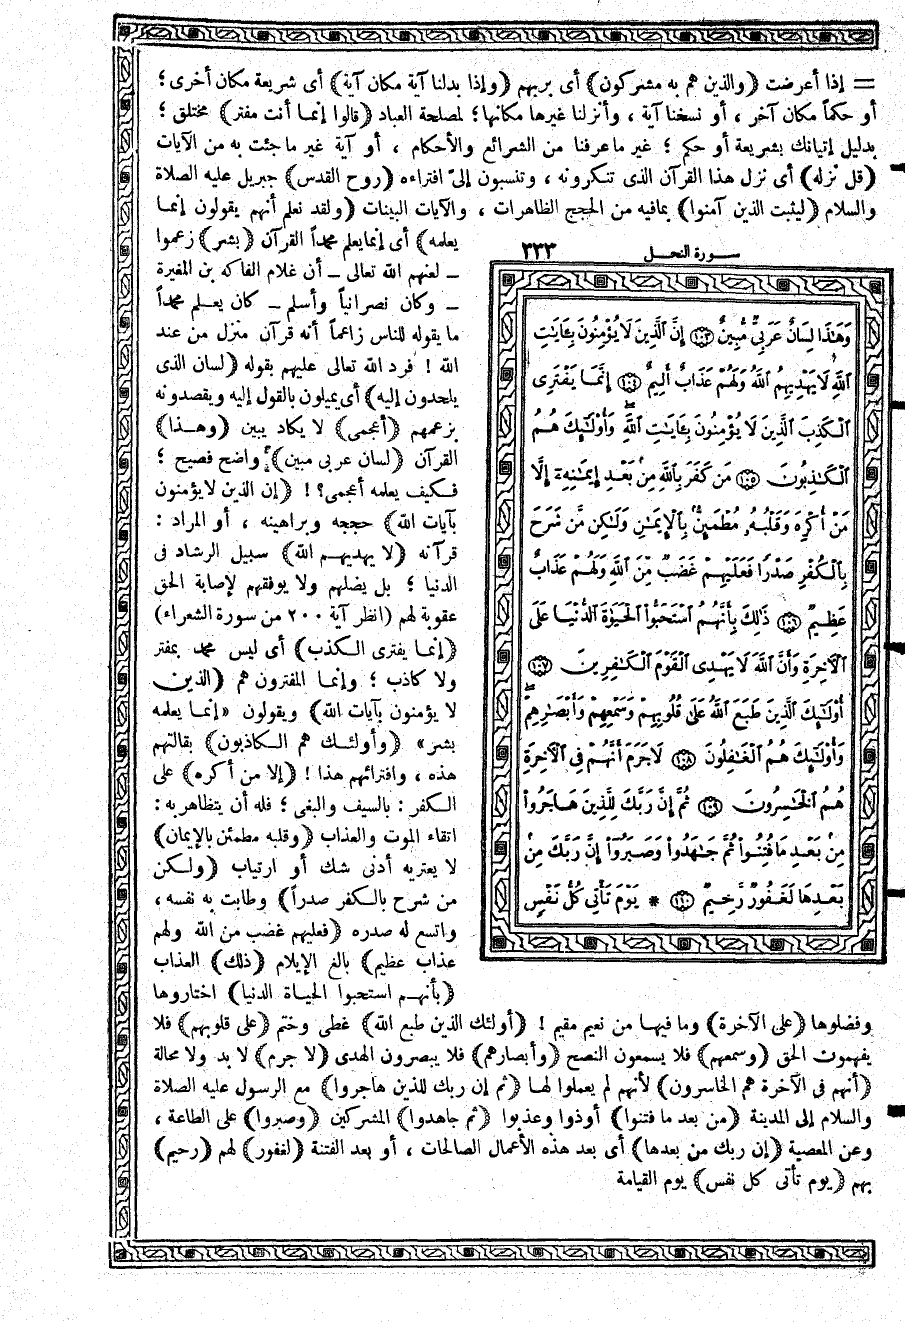 = إذا أعرضت (والذين هم به مشركون) أى بربهم (وإذا بدلنا آية مكان آية) أى شريعة مكان أخرى؛
أو حكماً مكان آخر، أو نسخنا آية، وأنزلنا غيرها مكانها؛ لمصلحة العباد (قالوا إنما أنت مفتر) مختلق؛
بدليل إتيانك بشريعة أو حكم؛ غير ماعرفنا من الشرائع والأحكام، أو آية غير ماجئت به من الآيات
(قل نزله) أى نزل هذا القرآن الذى تنكرونه، وتنسبون إلىّ افتراءه (روح القدس) جبريل عليه الصلاة
والسلام (ليثبت الذين آمنوا) بمافيه من الحجج الظاهرات، والآيات البينات (ولقد نعلم أنهم يقولون إنما
يعلمه) أى إنمايعلم محمداً القرآن (بشر) زعموا
ـ لعنهم الله تعالى ـ أن غلام الفاكه بن المغيرة
ـ وكان نصرانياً وأسلم ـ كان يعلم محمداً
ما يقوله للناس زاعماً أنه قرآن منزل من عند
الله! فرد الله تعالى عليهم بقوله (لسان الذى
يلحدون إليه) أى يميلون بالقول إليه ويقصدونه
بزعمهم (أعجمى) لا يكاد يبين (وهذا)
القرآن (لسان عربى مبين) واضح فصيح؛
فكيف يعلمه أعجمى؟! (إن الذين لا يؤمنون
بآيات الله) حججه وبراهينه، أو المراد:
قرآنه (لا يهديهم الله) سبيل الرشاد فى
الدنيا؛ بل يضلهم ولا يوفقهم لإصابة الحق
عقوبة لهم (انظر آية ٢٠٠ من سورة الشعراء)
(إنما يفترى الكذب) أى ليس محمد بمفتر
ولا كاذب؛ وإنما المفترون هم (الذين
لا يؤمنون بآيات الله) ويقولون «إنما يعلمه
بشر» (وأولئك هم الكاذبون) بقالتهم
هذه، وافترائهم هذا! (إلا من أكره) على
الكفر: بالسيف والبغى؛ فله أن يتظاهر به:
اتقاء الموت والعذاب (وقلبه مطمئن بالإيمان)
لا يعتريه أدنى شك أو ارتياب (ولكن
من شرح بالكفر صدراً) وطابت به نفسه،
واتسع له صدره (فعليهم غضب من الله ولهم
عذاب عظيم) بالغ الإيلام (ذلك) العذاب
(بأنهم استحبوا الحياة الدنيا) اختاروها
سورة النحل ٣٣٣
وَهَٰذَا لِسَانٌ عَرَبِىٌّ مُّبِينٌ ﴿١٠٣﴾ إِنَّ الَّذِينَ لَا يُؤْمِنُونَ بِـَٔايَٰتِ
اللَّهِ لَا يَهْدِيهِمُ اللَّهُ وَلَهُمْ عَذَابٌ أَلِيمٌ ﴿١٠٤﴾ إِنَّمَا يَفْتَرِى
الْكَذِبَ الَّذِينَ لَا يُؤْمِنُونَ بِـَٔايَٰتِ اللَّهِ وَأُولَٰٓئِكَ هُمُ
الْكَٰذِبُونَ ﴿١٠٥﴾ مَن كَفَرَ بِاللَّهِ مِنۢ بَعْدِ إِيمَٰنِهِۦٓ إِلَّا
مَنْ أُكْرِهَ وَقَلْبُهُۥ مُطْمَئِنٌّۢ بِالْإِيمَٰنِ وَلَٰكِن مَّن شَرَحَ
بِالْكُفْرِ صَدْرًا فَعَلَيْهِمْ غَضَبٌ مِّنَ اللَّهِ وَلَهُمْ عَذَابٌ
عَظِيمٌ ﴿١٠٦﴾ ذَٰلِكَ بِأَنَّهُمُ اسْتَحَبُّوا الْحَيَوٰةَ الدُّنْيَا عَلَى
الْآخِرَةِ وَأَنَّ اللَّهَ لَا يَهْدِى الْقَوْمَ الْكَٰفِرِينَ ﴿١٠٧﴾
أُولَٰٓئِكَ الَّذِينَ طَبَعَ اللَّهُ عَلَىٰ قُلُوبِهِمْ وَسَمْعِهِمْ وَأَبْصَٰرِهِمْ
وَأُولَٰٓئِكَ هُمُ الْغَٰفِلُونَ ﴿١٠٨﴾ لَا جَرَمَ أَنَّهُمْ فِى الْآخِرَةِ
هُمُ الْخَٰسِرُونَ ﴿١٠٩﴾ ثُمَّ إِنَّ رَبَّكَ لِلَّذِينَ هَاجَرُوا
مِنۢ بَعْدِ مَا فُتِنُوا ثُمَّ جَٰهَدُوا وَصَبَرُوٓا إِنَّ رَبَّكَ مِنۢ
بَعْدِهَا لَغَفُورٌ رَّحِيمٌ ﴿١١٠﴾ * يَوْمَ تَأْتِى كُلُّ نَفْسٍ
وفضلوها (على الآخرة) وما فيها من نعيم مقيم! (أولئك الذين طبع الله) غطى وختم (على قلوبهم) فلا
يفهمون الحق (وسمعهم) فلا يسمعون النصح (وأبصارهم) فلا يبصرون الهدى (لا جرم) لا بد ولا محالة
(أنهم فى الآخرة هم الخاسرون) لأنهم لم يعملوا لها (ثم إن ربك للذين هاجروا) مع الرسول عليه الصلاة
والسلام إلى المدينة (من بعد ما فتنوا) أوذوا وعذبوا (ثم جاهدوا) المشركين (وصبروا) على الطاعة،
وعن المعصية (إن ربك من بعدها) أى بعد هذه الأعمال الصالحات، أو بعد الفتنة (لغفور) لهم (رحيم)
بهم (يوم تأتى كل نفس) يوم القيامة